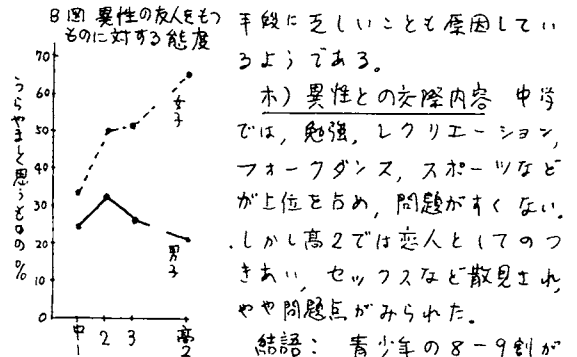 8図 異性の友人をもつ
ものに対する態度
70
60
50
40
30
20
10
0
うらやましく思うものの%
女子
男子
中1
2
3
高2
手段に乏しいことも原因してい
るようである。
ホ) 異性との交際内容 中学
では, 勉強, レクリエーション,
フォークダンス, スポーツなど
が上位を占め, 問題がすくない。
しかし高2では恋人としてのつ
きあい, セックスなど散見され,
やや問題点がみられた。
結語: 青少年の8-9割が